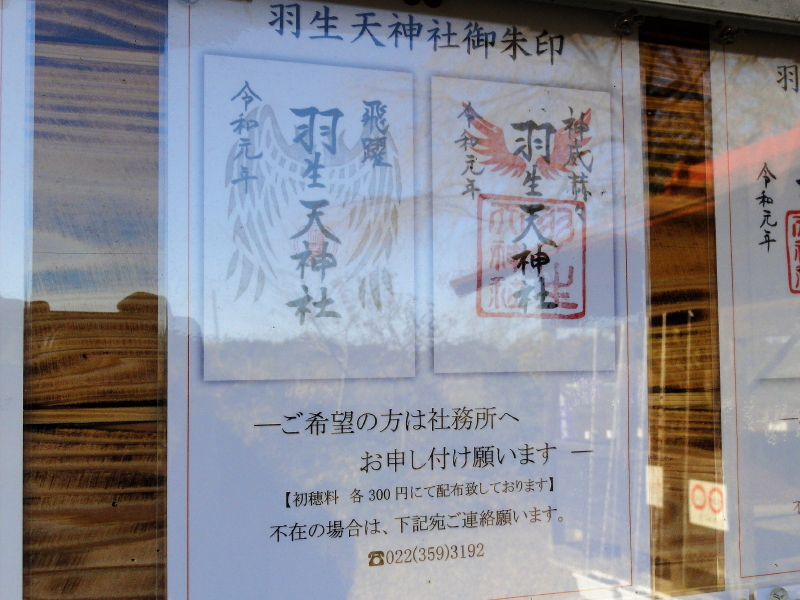 羽生天神社御朱印
飛躍
羽生天神社
令和元年
羽生天神社
令和元年
ーご希望の方は社務所へ
お申し付け願います ー
【初穂料 各300円にて配布致しております】
不在の場合は、下記宛ご連絡願います。
☎022(359)3192
羽
令和元年